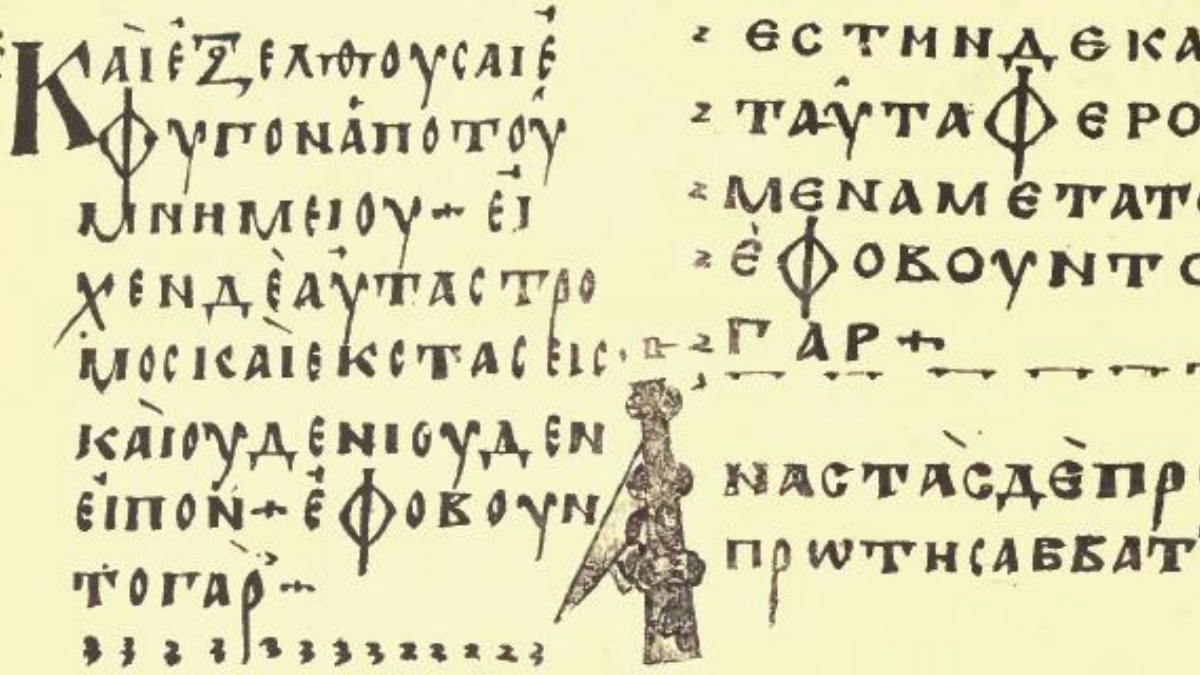 ΚΑῚἘΞΕΛΘΟΥΣΑΙἘ
ΦΥΓΟΝἈΠΟΤΟΥ͂
ΜΝΗΜΕΙΟΥ+ ΕἸ
ΧΕΝΔῈΑὙΤΑϹΤΡΟ
ΜΟϹΚΑῚΕΚϹΤΑϹΕΙϹ·
ΚΑῚΟΥΔΕΝΙΟΥΔΕΝ
ΕἸΠΟΝ+ἘΦΟΒΟΥΝ
ΤΟΓᾺΡ+
ΕϹΤΗΝΔΕΚΑ
ΤΑΥ͂ΤΑΦΕΡΟ
ΜΕΝΑΜΕΤΑΤ
ἘΦΟΒΟΥΝΤΟ
ΓΑΡ+
ἈΝΑϹΤᾺϹΔῈΠΡ
ΠΡΩΤΗϹΑΒΒΑΤ